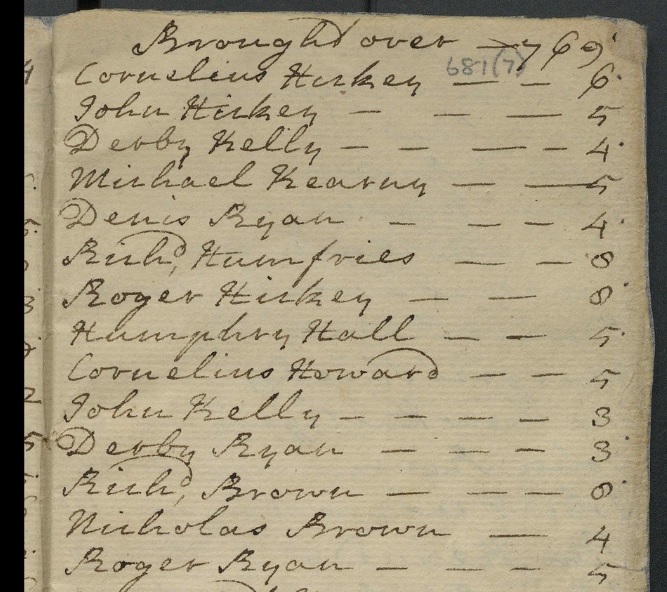 Brought over — 769
681(7)
Cornelius Hickey — — 6
John Hickey — — — 5
Derby Kelly — — — — 4
Michael Kearny — — 5
Denis Ryan — — — 4
Richd, Humfries — — 8
Roger Hickey — — — 8
Humphry Hall — — — 5
Cornelius Howard — — 5
John Kelly — — — — 3
Derby Ryan — — — — 3
Richd, Brown — — — 8
Nicholas Brown — 4
Roger Ryan — — — 5